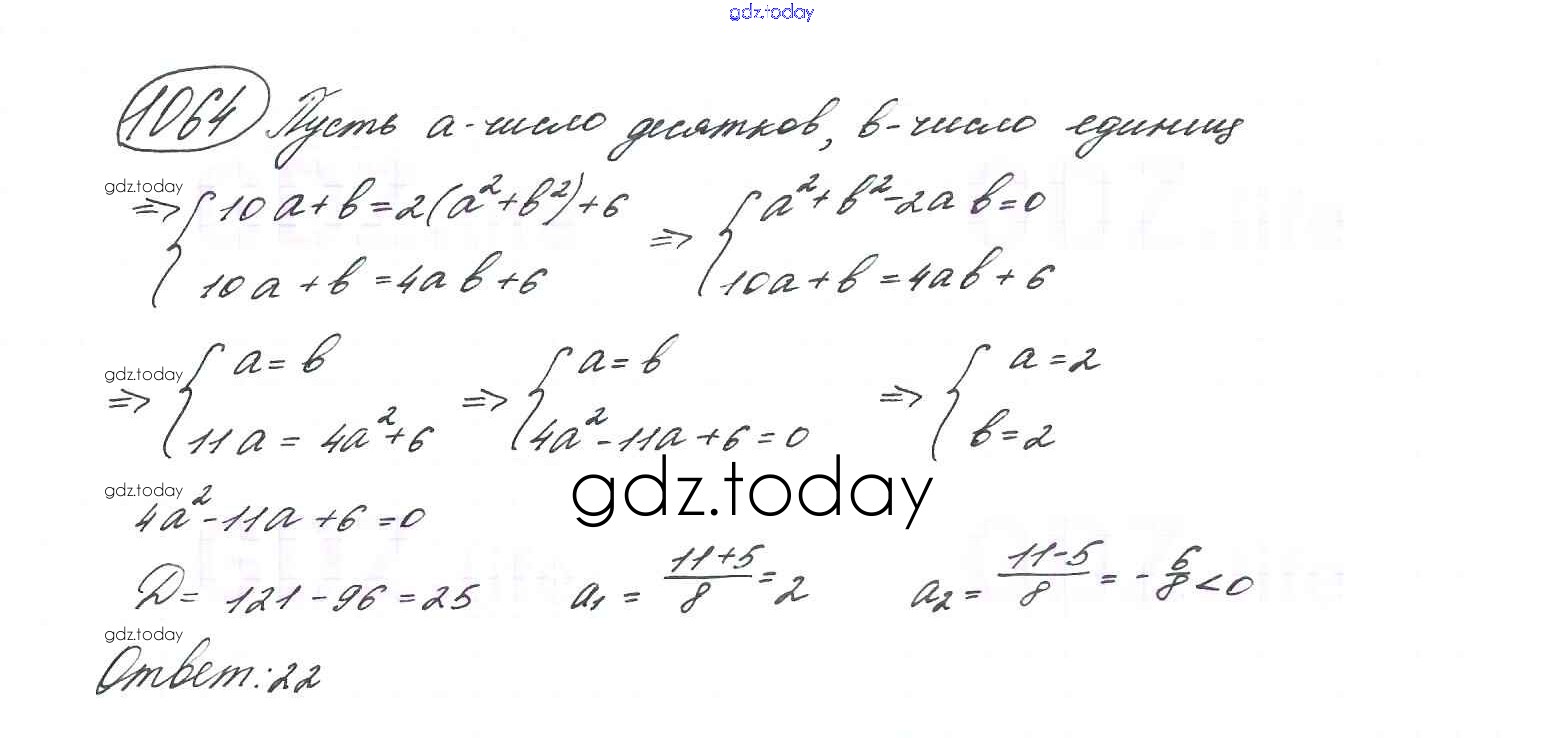 gdz.today
1064 Пусть a-число десятков, b-число единиц
gdz.today
=> { 10a+b=2(a²+b²)+6 => { a²+b²-2ab=0
10a+b=4ab+6 10a+b=4ab+6
gdz.today
=> { a=b => { a=b => { a=2
11a=4a²+6 4a²-11a+6=0 b=2
gdz.today
gdz.today
4a²-11a+6=0
D=121-96=25 a₁=(11+5)/8=2 a₂=(11-5)/8=-6/8<0
gdz.today
Ответ: 22